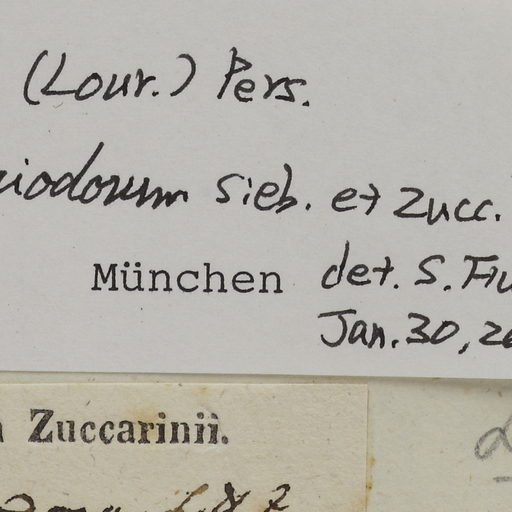 (Lour.) Pers.
iodorum Sieb. et Zucc.
München det. S. Fu
Jan. 30, 20
Zuccarinii.